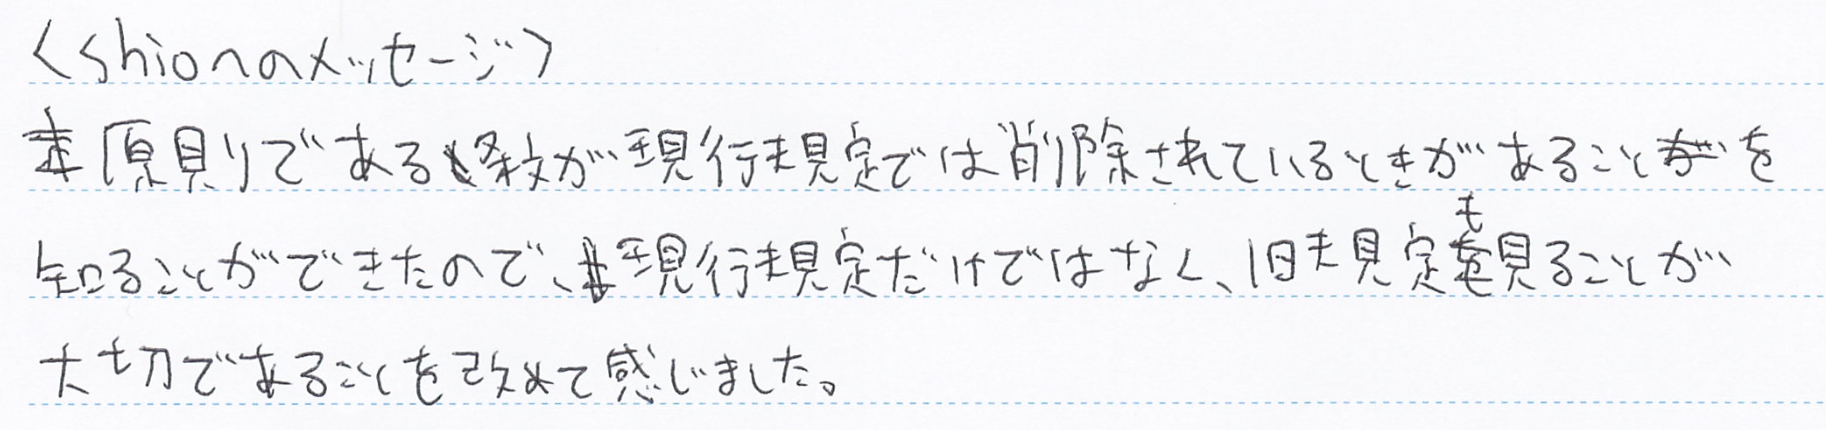 <shionのメッセージ>
原則である条文が現行規定では削除されているときがあることを
知ることができたので、現行規定だけではなく、旧規定も見ることが
大切であることを改めて感じました。